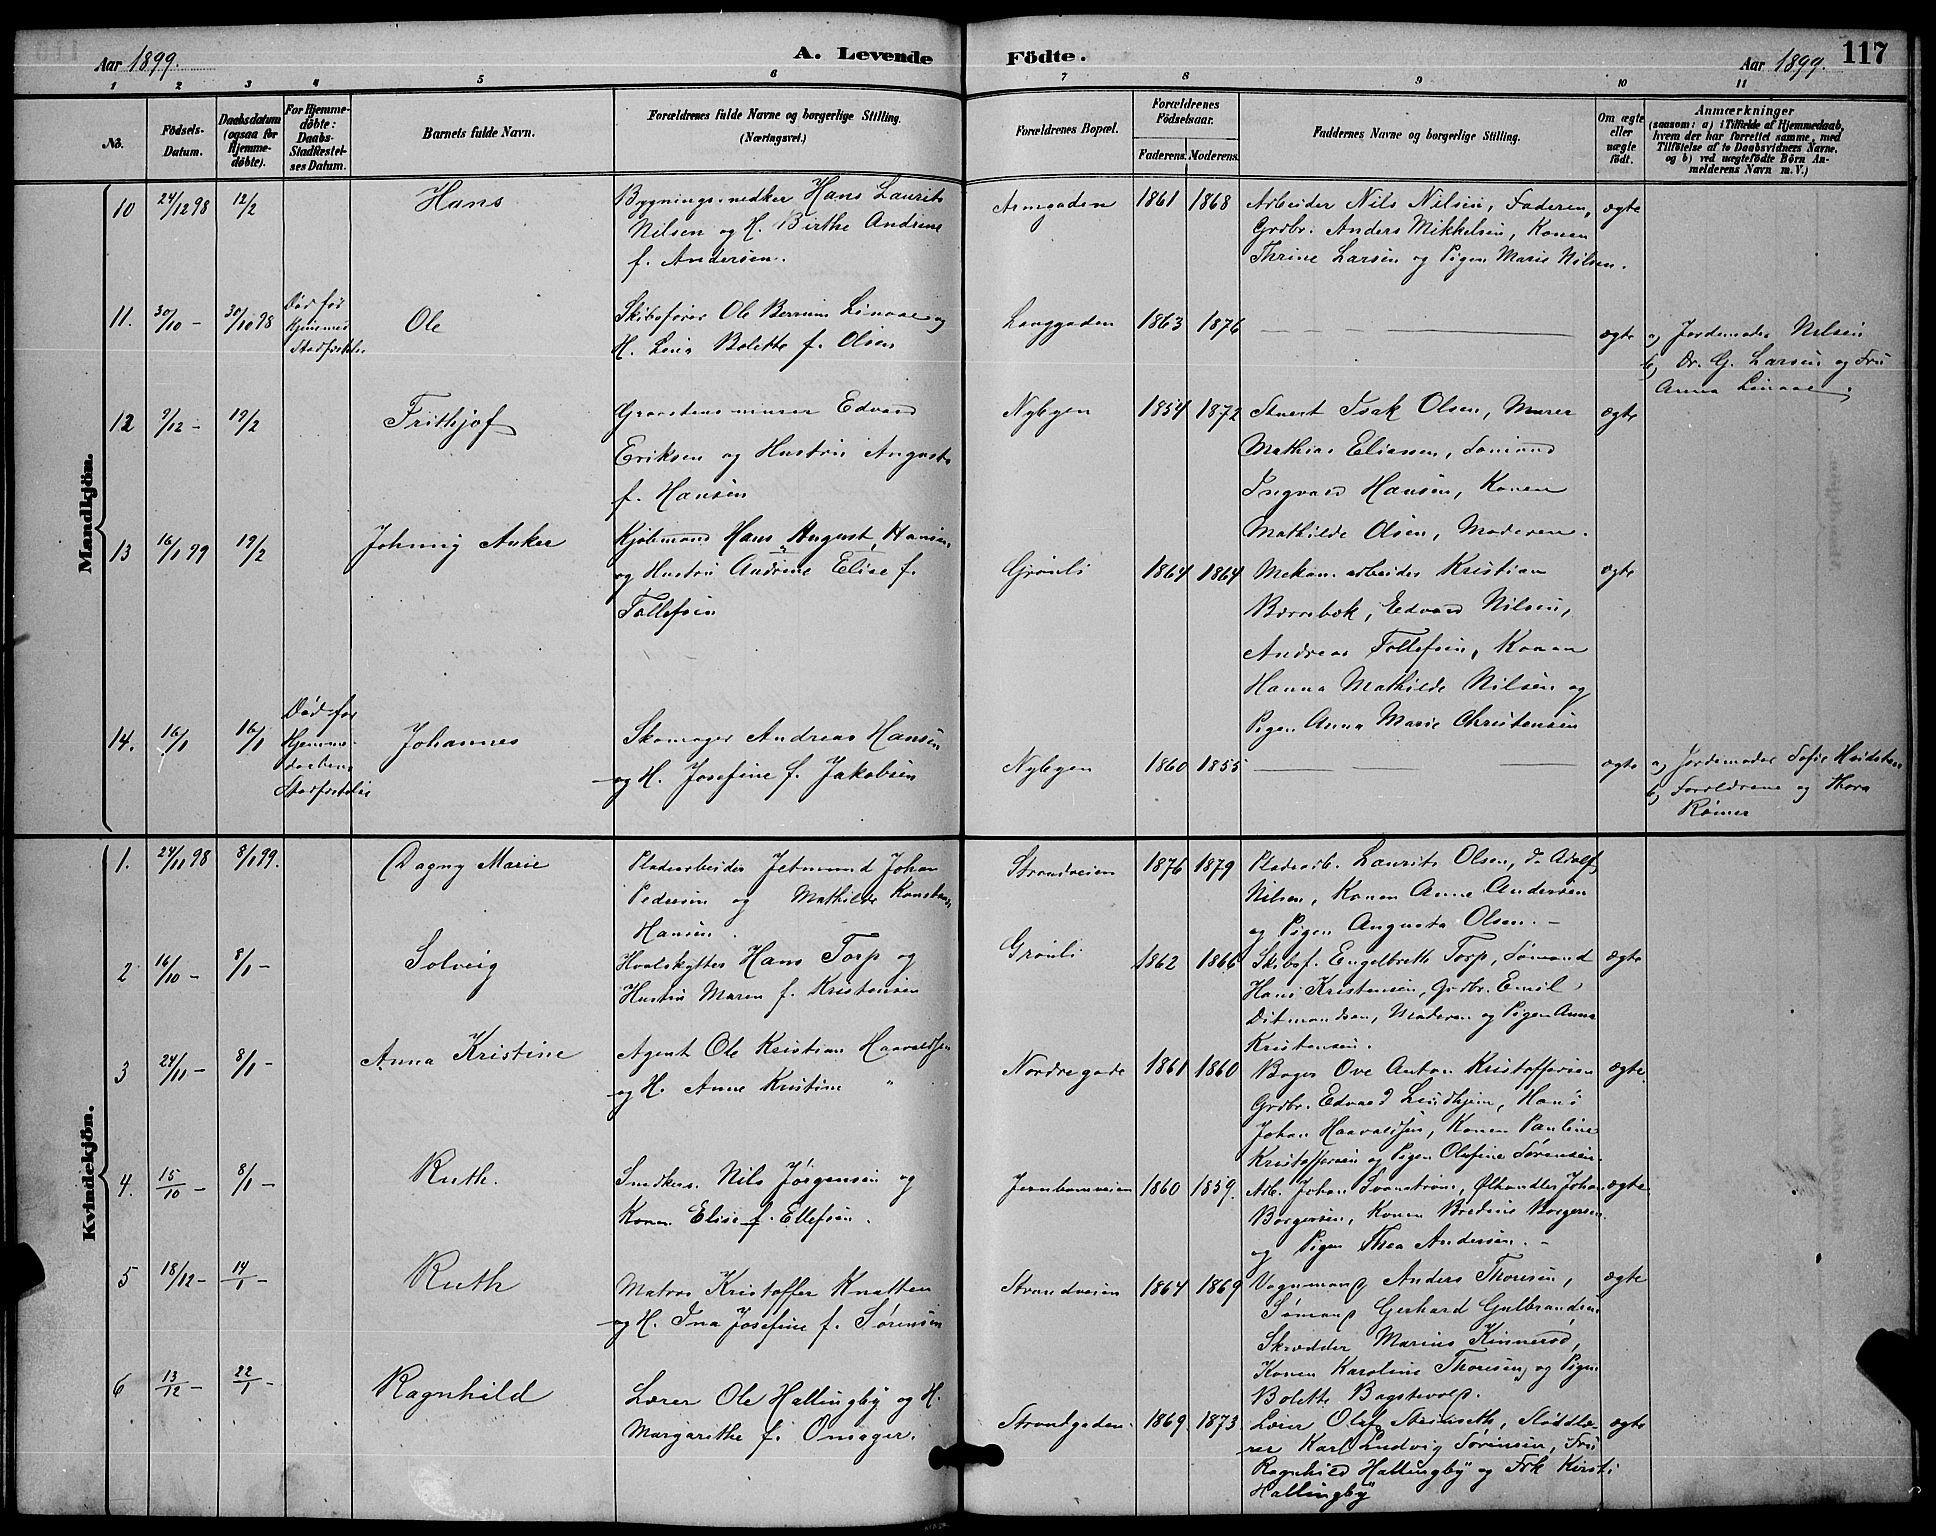 Aar 1899. A. Levende Födte. Aar 1899. 117
1 2 3 4 5 6 7 8 9 10 11
No. Födsels-Datum. Daabsdatum (ogsaa for Hjemmedöbte). For Hjemmedöbte: Daabs-Stadfæstelses Datum. Barnets fulde Navn. Forældrenes fulde Navne og borgerlige Stilling. (Næringsvei.) Forældrenes Bopæl. Forældrenes Födselsaar. Faderens. Moderens. Faddernes Navne og borgerlige Stilling. Om ægte eller uægte födt. Anmærkninger (saasom: a) i Tilfælde af Hjemmedaab, hvem der har forrettet samme, med Tilföielse af to Daabsvidners Navne, og b) ved uægtefödte Börn Anmelderens Navn m. V.)
Mandkjön.
10 24/12 98 12/2 Hans Bygningssnedker Hans Laurits 1861 1868 Arbeider Nils Nilsen, Faderen, ægte
Nilsen og H. Birthe Andrine Grdbr. Anders Mikkelsen, Konen
f. Andersen. Thrine Larsen og Pigen Marie Nilsen.
11. 30/10 - 30/10 98 Død før Hjemmed Stadfæstelse Ole Skibsfører Ole Berrum Linaae og Langgaden 1863 1876 — — — ægte a) Jordemoder Nilsen
H. Lina Bolette f. Olsen b) Dr. G. Larsen og Fru
Anna Linaae.
12 9/12 - 19/2 Frithjof Gravstensmurer Edvard Nybyen 1854 1872 Stuert Isak Olsen, Murer ægte
Eriksen og Hustru Augusta Mathias Eliassen, Sømand
f. Hansen Ingvard Hansen, Konen
Mathilde Olsen, Moderen.
13 16/1 99 19/2 Johnny Anker Kjøbmand Hans August Hansen Grønli 1864 1864 Mekan. arbeider Kristian ægte
og Hustru Andrine Elise f. Bærrebæk, Edvard Nilsen,
Tollefsen Andreas Tollefsen, Konen
Hanna Mathilde Nilsen og
Pigen Anna Marie Christensen
14. 16/1 16/1 Død før Hjemmedaabens Stadfæstelse Johannes Skomager Andreas Hansen Nybyen 1860 1855 — — — ægte a) Jordemoder Sofie
og H. Josefine f. Jakobsen b) Forældrene og Thora
Rømer
Kvindekjön.
1. 24/11 98 8/1 99. Dagny Marie Pladsarbeider Jetmund Johan Strandveien 1876 1879 Pladsarb. Laurits Olsen, d. Adolf
Pedersen og Mathilde Konstanse Nilsen, Konen Anne Andersen
Hansen. og Pigen Augusta Olsen. -
2 16/10 - 8/1 - Solveig Hvalskytter Hans Torp og Grønli 1862 1866 Skibsf. Engelbrett Torp, Sømand ægte
Hustru Maren f. Kristensen Hans Kristensen, Grdbr. Emil
Ditmandsen, Moderen og Pigen Anna
Kristensen.
3 24/11 - 8/1 - Anna Kristine Agent Ole Kristian Haavaldsen Nordregade 1861 1860 Bager Ove Anton Kristoffersen ægte.
og H. Anne Kristine " Grdbr. Edvard Lindhjem, Hans
Johan Haavaldsen, Konen Pauline
Kristoffersen og Pigen Olufine Sørensen.
4. 15/10 - 8/1 - Ruth. Smedkers. Nils Jørgensen og Jernbaneveien 1860 1859. Arb. Johan Svanstrøm, Ølhandler Johan ægte.
Konen Elise f. Ellefsen. Borgersen, Konen Bredine Borgersen
og Pigen Thea Andersen. -
5 18/12 - 14/1 - Ruth Matros Kristoffer Knatten Strandveien 1864 1869 Vognmand Anders Thoresen, ægte
og H. Ina Josefine f. Sørensen Sømand Gerhard Gulbrandsen
Skrædder Marius Kinnerød,
Konen Karoline Thoresen og Pigen
Bolette Bagstevold.
6 13/12 - 22/1 - Ragnhild Lærer Ole Hallingby og H. Strandgaden. 1869. 1873. Lærer Olaf Stenseth, Sløidlæ- ægte
Margarethe f. Omager. rer Karl Ludvig Sørensen, Fru
Ragnhild Hallingby og Frk Kirsti
Hallingby